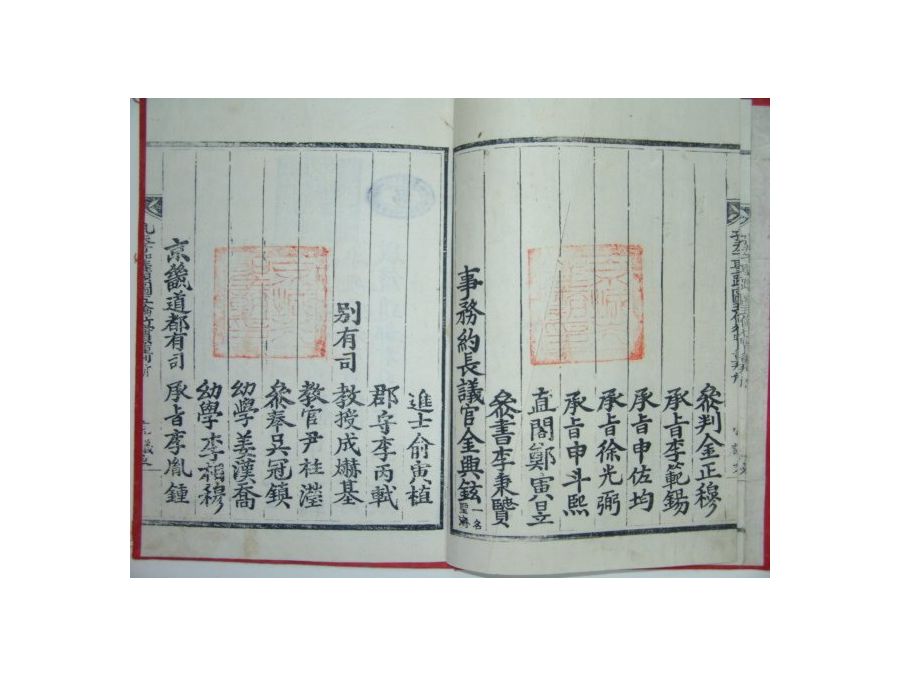 參判金正穆
承旨李範錫
承旨申佐均
承旨徐光弼
承旨申斗熙
直閣鄭寅昱
參書李秉贊
事務約長議官金典鉉一名聖濟
進士俞寅植
郡守李丙軾
別有司教授成爀基
教官尹柱瀅
參奉吳冠鎮
幼學姜漢喬
幼學李穆
京畿道都有司承旨李胤鍾